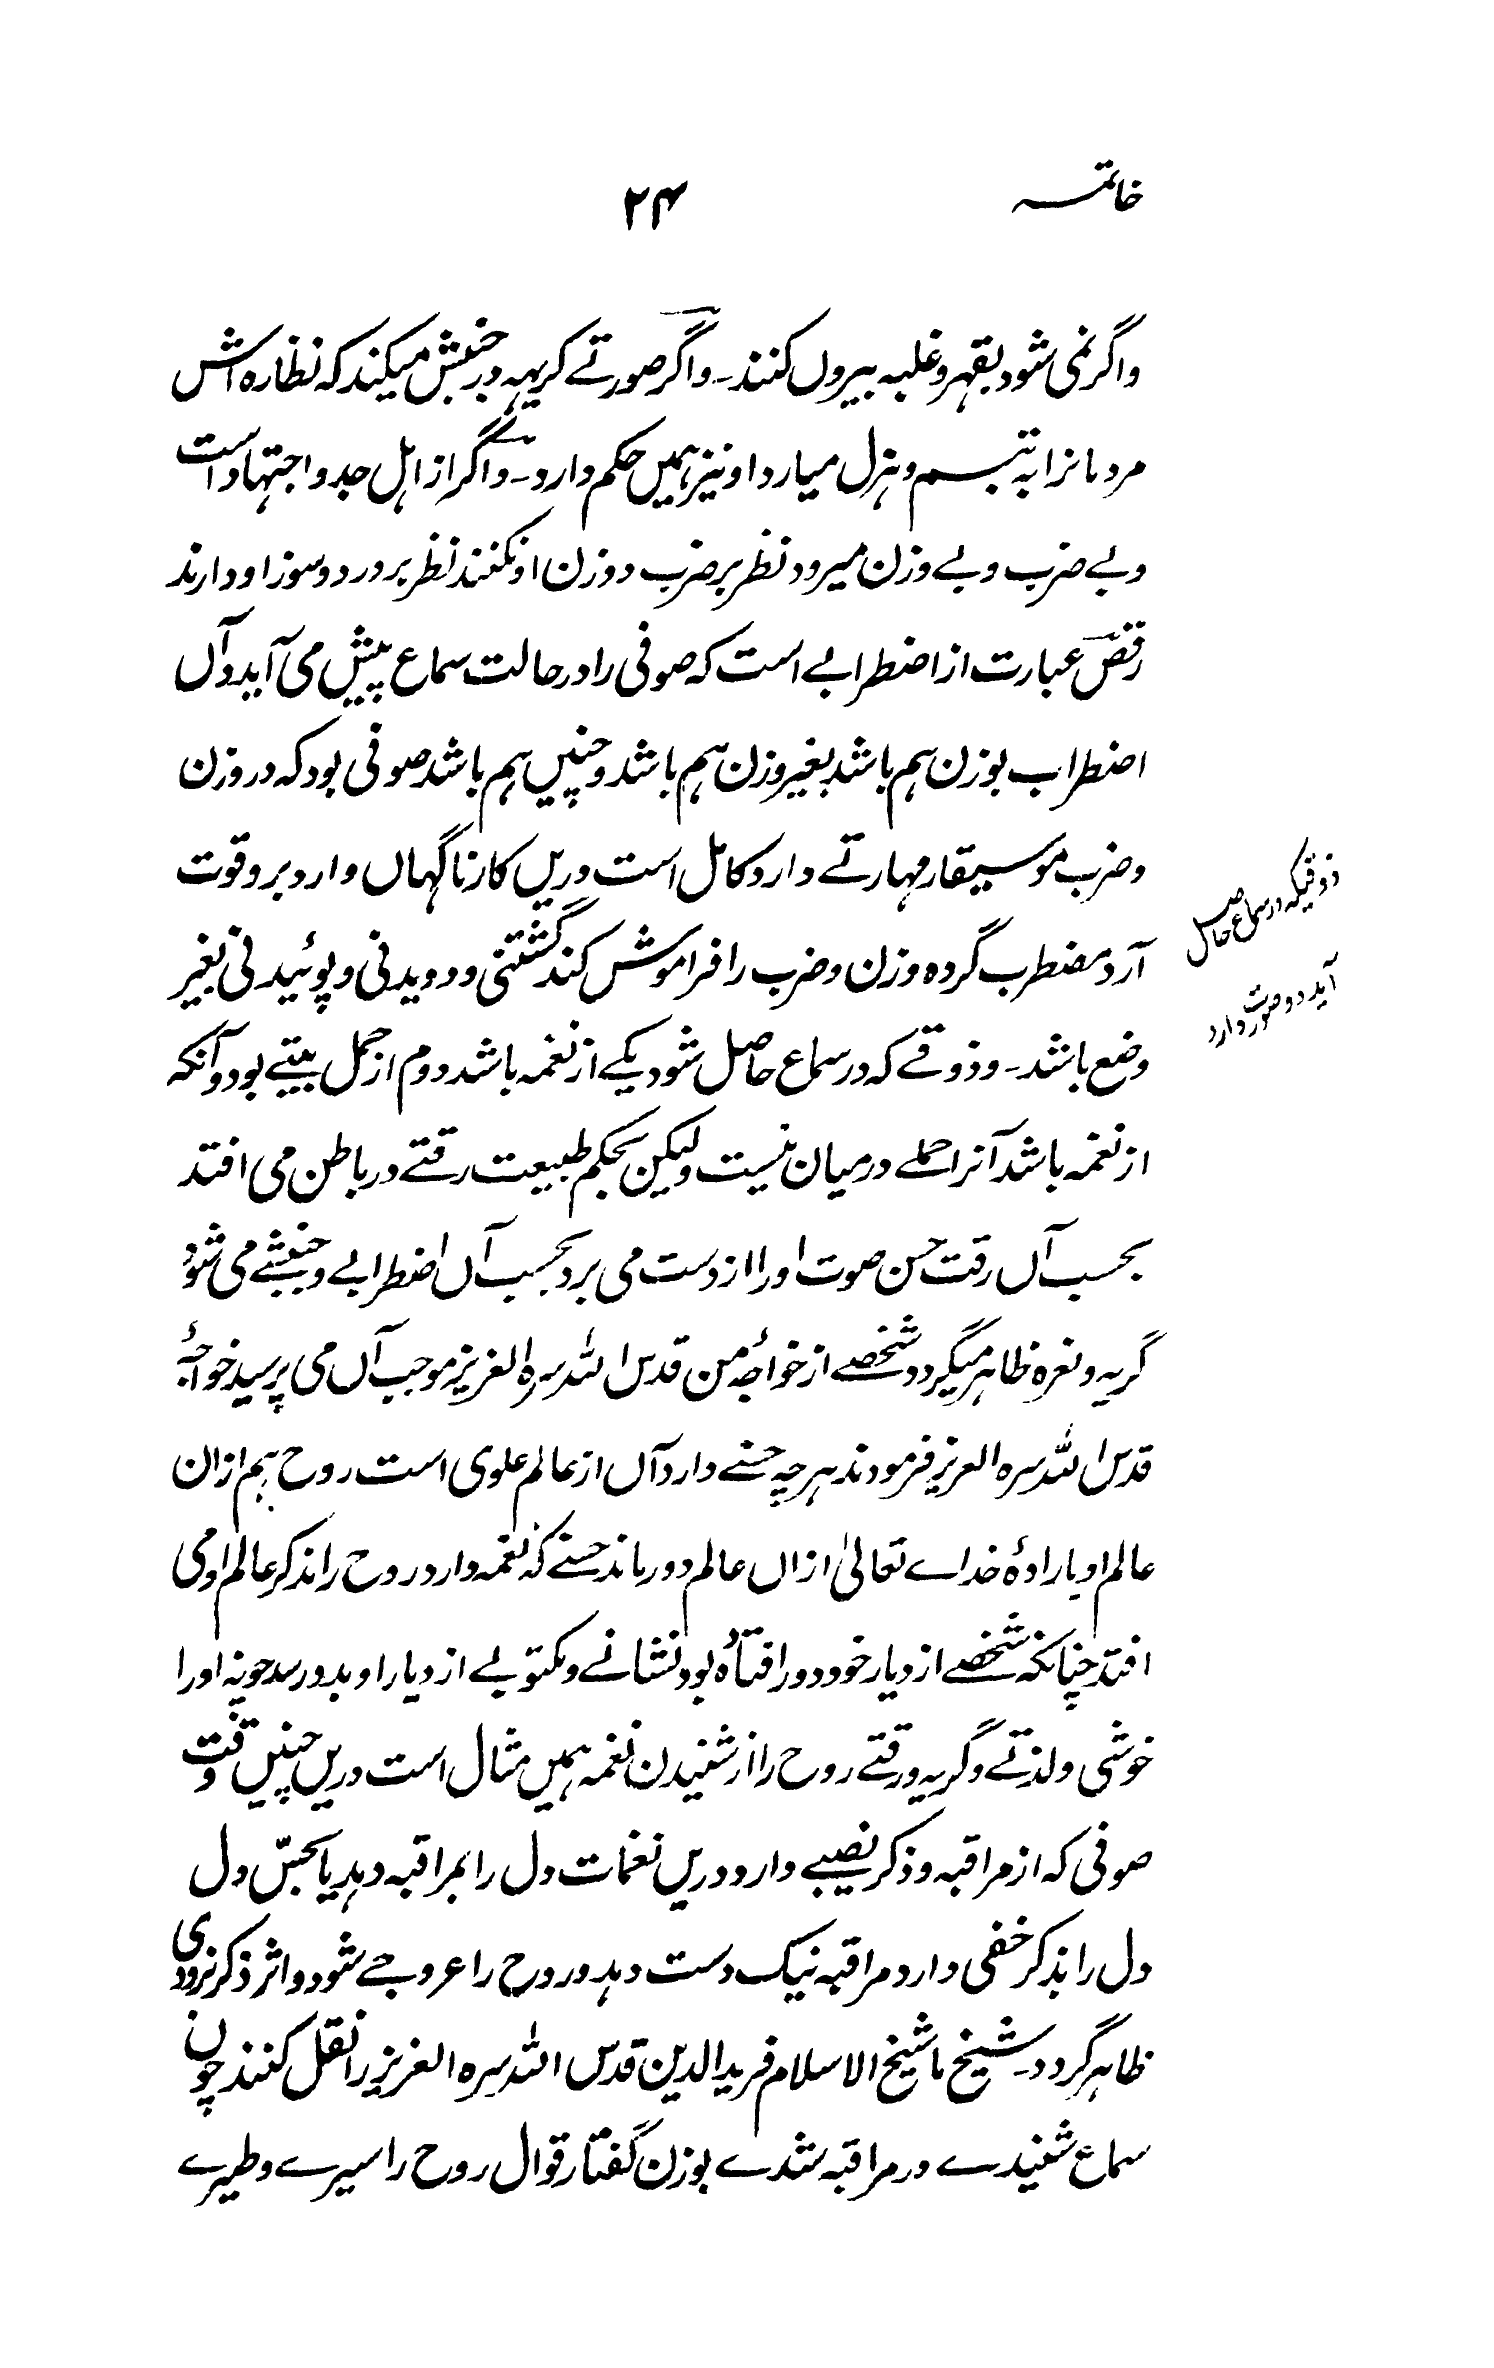 خاتمہ
۲۴
واگر نمی شود بقہر و غلبہ بیروں کنند۔ واگر صورتے کریہہ در جنبش میکند کہ نظارہ اش
مردمانرا بہ تبسم و ہزل میآرد او نیز ہمیں حکم دارد۔ واگر از اہل جد و اجتہاد است
وبے ضرب وبے وزن میرود نظر بر ضرب و وزن او نکنند نظر بر درد و سوز او دارند
رقص عبارت از اضطرابے است کہ صوفی را در حالت سماع پیش می آید و آں
اضطراب بوزن ہم باشد بغیر وزن ہم باشد و چنیں ہم باشد صوفی بود کہ در وزن
وضرب موسیقار مہارتے دارد کامل است دریں کار ناگہاں وارد برو قوت
آرد مضطرب گردد وزن وضرب را فراموش کند گشتنی و دویدنی و پوئیدنی بغیر
وضع باشد۔ وذوقے کہ در سماع حاصل شود یکے از نغمہ باشد دوم از حمل بیتے بود و آنکہ
از نغمہ باشد آنرا حملے درمیان نیست ولیکن بحکم طبیعت رقتے در باطن می افتد
بحسب آں رقت حسن صوت اورا از دست می برد بحسب آں اضطرابے و جنبشے می شود
گریہ و نعرہ ظاہر میگردد شخصے از خواجۂ من قدس اللہ سرہ العزیز موجب آں می پرسید خواجۂ
قدس اللہ سرہ العزیز فرمودند ہرچہ حسنے دارد آں از عالم علوی است روح ہم ازان
عالم او بارادۂ خداے تعالیٰ ازاں عالم دور ماند حسنے کہ نغمہ دارد روح را ذکر عالم او می
افتد چنانکہ شخصے از دیار خود دور افتادہ بود نشانے و مکتوبے از دیار او بدو رسد چونہ اورا
خوشی ولذتے وگریہ ورقتے روح را از شنیدن نغمہ ہمیں مثال است دریں چنیں وقت
صوفی کہ از مراقبہ و ذکر نصیبے دارد دریں نغمات دل را بمراقبہ دہد یا بحبس دل
دل را بذکر خفی دارد مراقبہ نیک دست دہد و روح را عروجے شود و اثر ذکر بزودی
ظاہر گردد۔ شیخ ما شیخ الاسلام فرید الدین قدس اللہ سرہ العزیز را نقل کنند چون
سماع شنیدے در مراقبہ شدے بوزن گفتار قوال روح را سیرے و طیرے
ذوقیکہ در سماع حاصل
آید دو صورت دارد